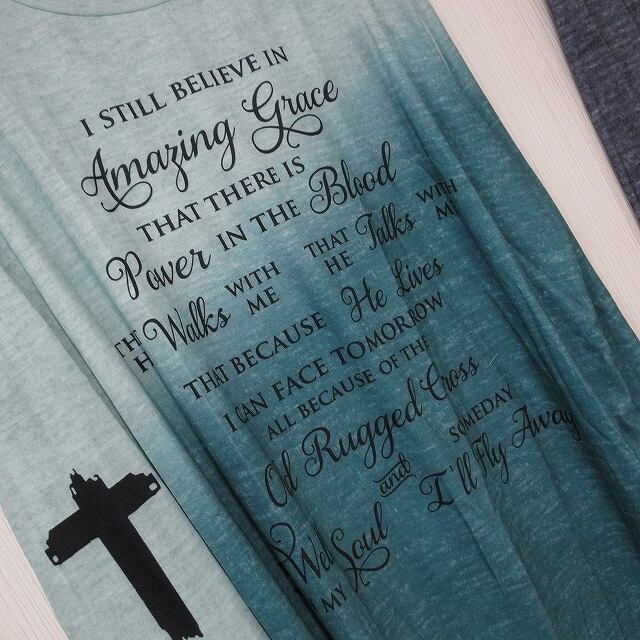 I STILL BELIEVE IN
Amazing Grace
THAT THERE IS
Power IN THE Blood
TH Walks WITH THAT Talks WITH
H ME HE ME
THAT BECAUSE He Lives
I CAN FACE TOMORROW
ALL BECAUSE OF THE
Ol Rugged Cross
and SOMEDAY
Wel Soul I'll Fly Away
MY